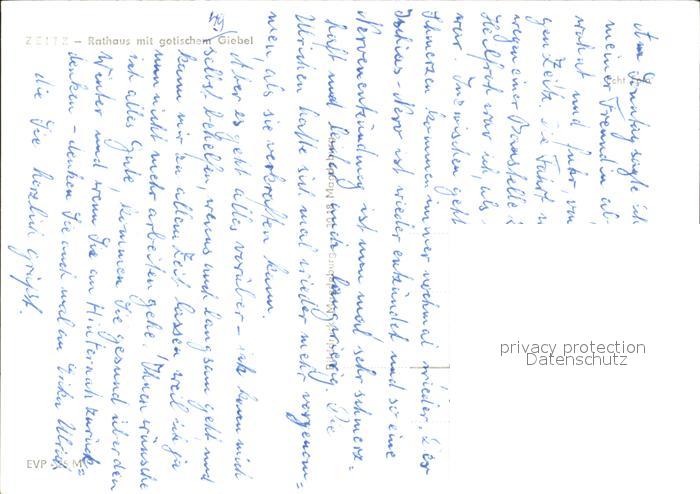 ZEITZ – Rathaus mit gotischem Giebel
Am Sonntag sagte ich
meiner Freundin ab-
und fuhr, von
Zeitz, die Fahrt
wegen einer Baustelle
Heilfroh war ich, als
war. Inzwischen geht
Schmerzen kommen immer nochmal wieder. Der
Ischias-Nerv ist wieder entzündet und so eine
Nervenentzündung ist nun mal sehr schmerz=
haft und leider auch langwierig. Die
Ulrichen hatte sich mal wieder mehr vorgenom=
men, als sie verkraften kann.
Aber es geht alles vorüber – ich kann mich
selbst behelfen, wenns auch langsam geht und
kann mir ja allen Zeit lassen weil ich ja
nun nicht mehr arbeiten gehe. Ihnen wünsche
ich alles Gute, kommen Sie gesund über den
Winter und wenn Sie an Hinternah zurück=
denken – denken Sie auch mal an Erika Ulrich
die Sie herzlich grüßt.
EVP
privacy protection
Datenschutz